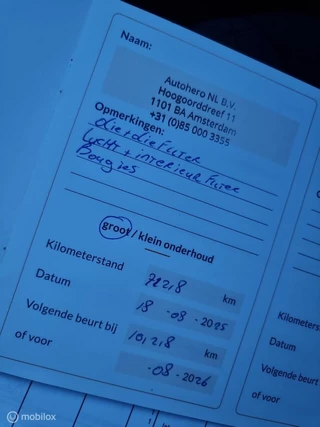 Naam:
Autohero NL B.V.
Hoogoorddreef 11
1101 BA Amsterdam
+31 (0)85 000 3355
Opmerkingen:
olie + olie Filter
Lucht + interieur Filter
Bougies
groot / klein onderhoud
Kilometerstand
km
Datum
18 - 08 - 2025
Volgende beurt bij
km
of voor
-08 - 2026
Kilometers
Datum
Volgende beurt
of voor
mobilox